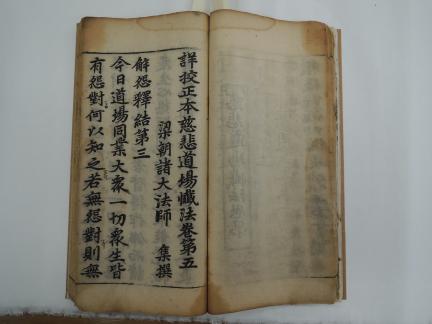 詳校正本慈悲道場懺法卷第五
梁朝諸大法師 集撰
解怨釋結第三
今日道場同業大衆一切衆生皆
有怨對何以知之若無怨對則無